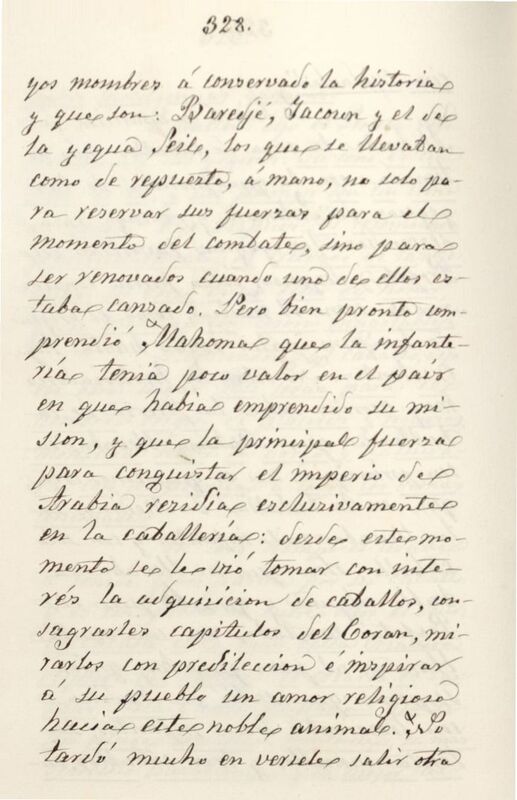 328.
yos nombres á conservado la historia
y que son: Baredjé, Jacoun y el de
la yegua Seil, los que se llevaban
como de repuesto, á mano, no solo pa-
ra reservar sus fuerzas para el
momento del combate, sino para
ser renovados cuando uno de ellos es-
taba cansado. Pero bien pronto com-
prendió Mahoma que la infante-
ría tenia poco valor en el pais
en que habia emprendido su mi-
sion, y que la principal fuerza
para conquistar el imperio de
Arabia rezidia escluzivamente
en la caballería: desde este mo-
mento se le vió tomar con inte-
rés la adquisicion de caballos, con-
sagrarles capitulos del Coran, mi-
rarlos con predileccion é inspirar
á su pueblo un amor religioso
hacia este noble animal. No
tardó mucho en versele salir otra